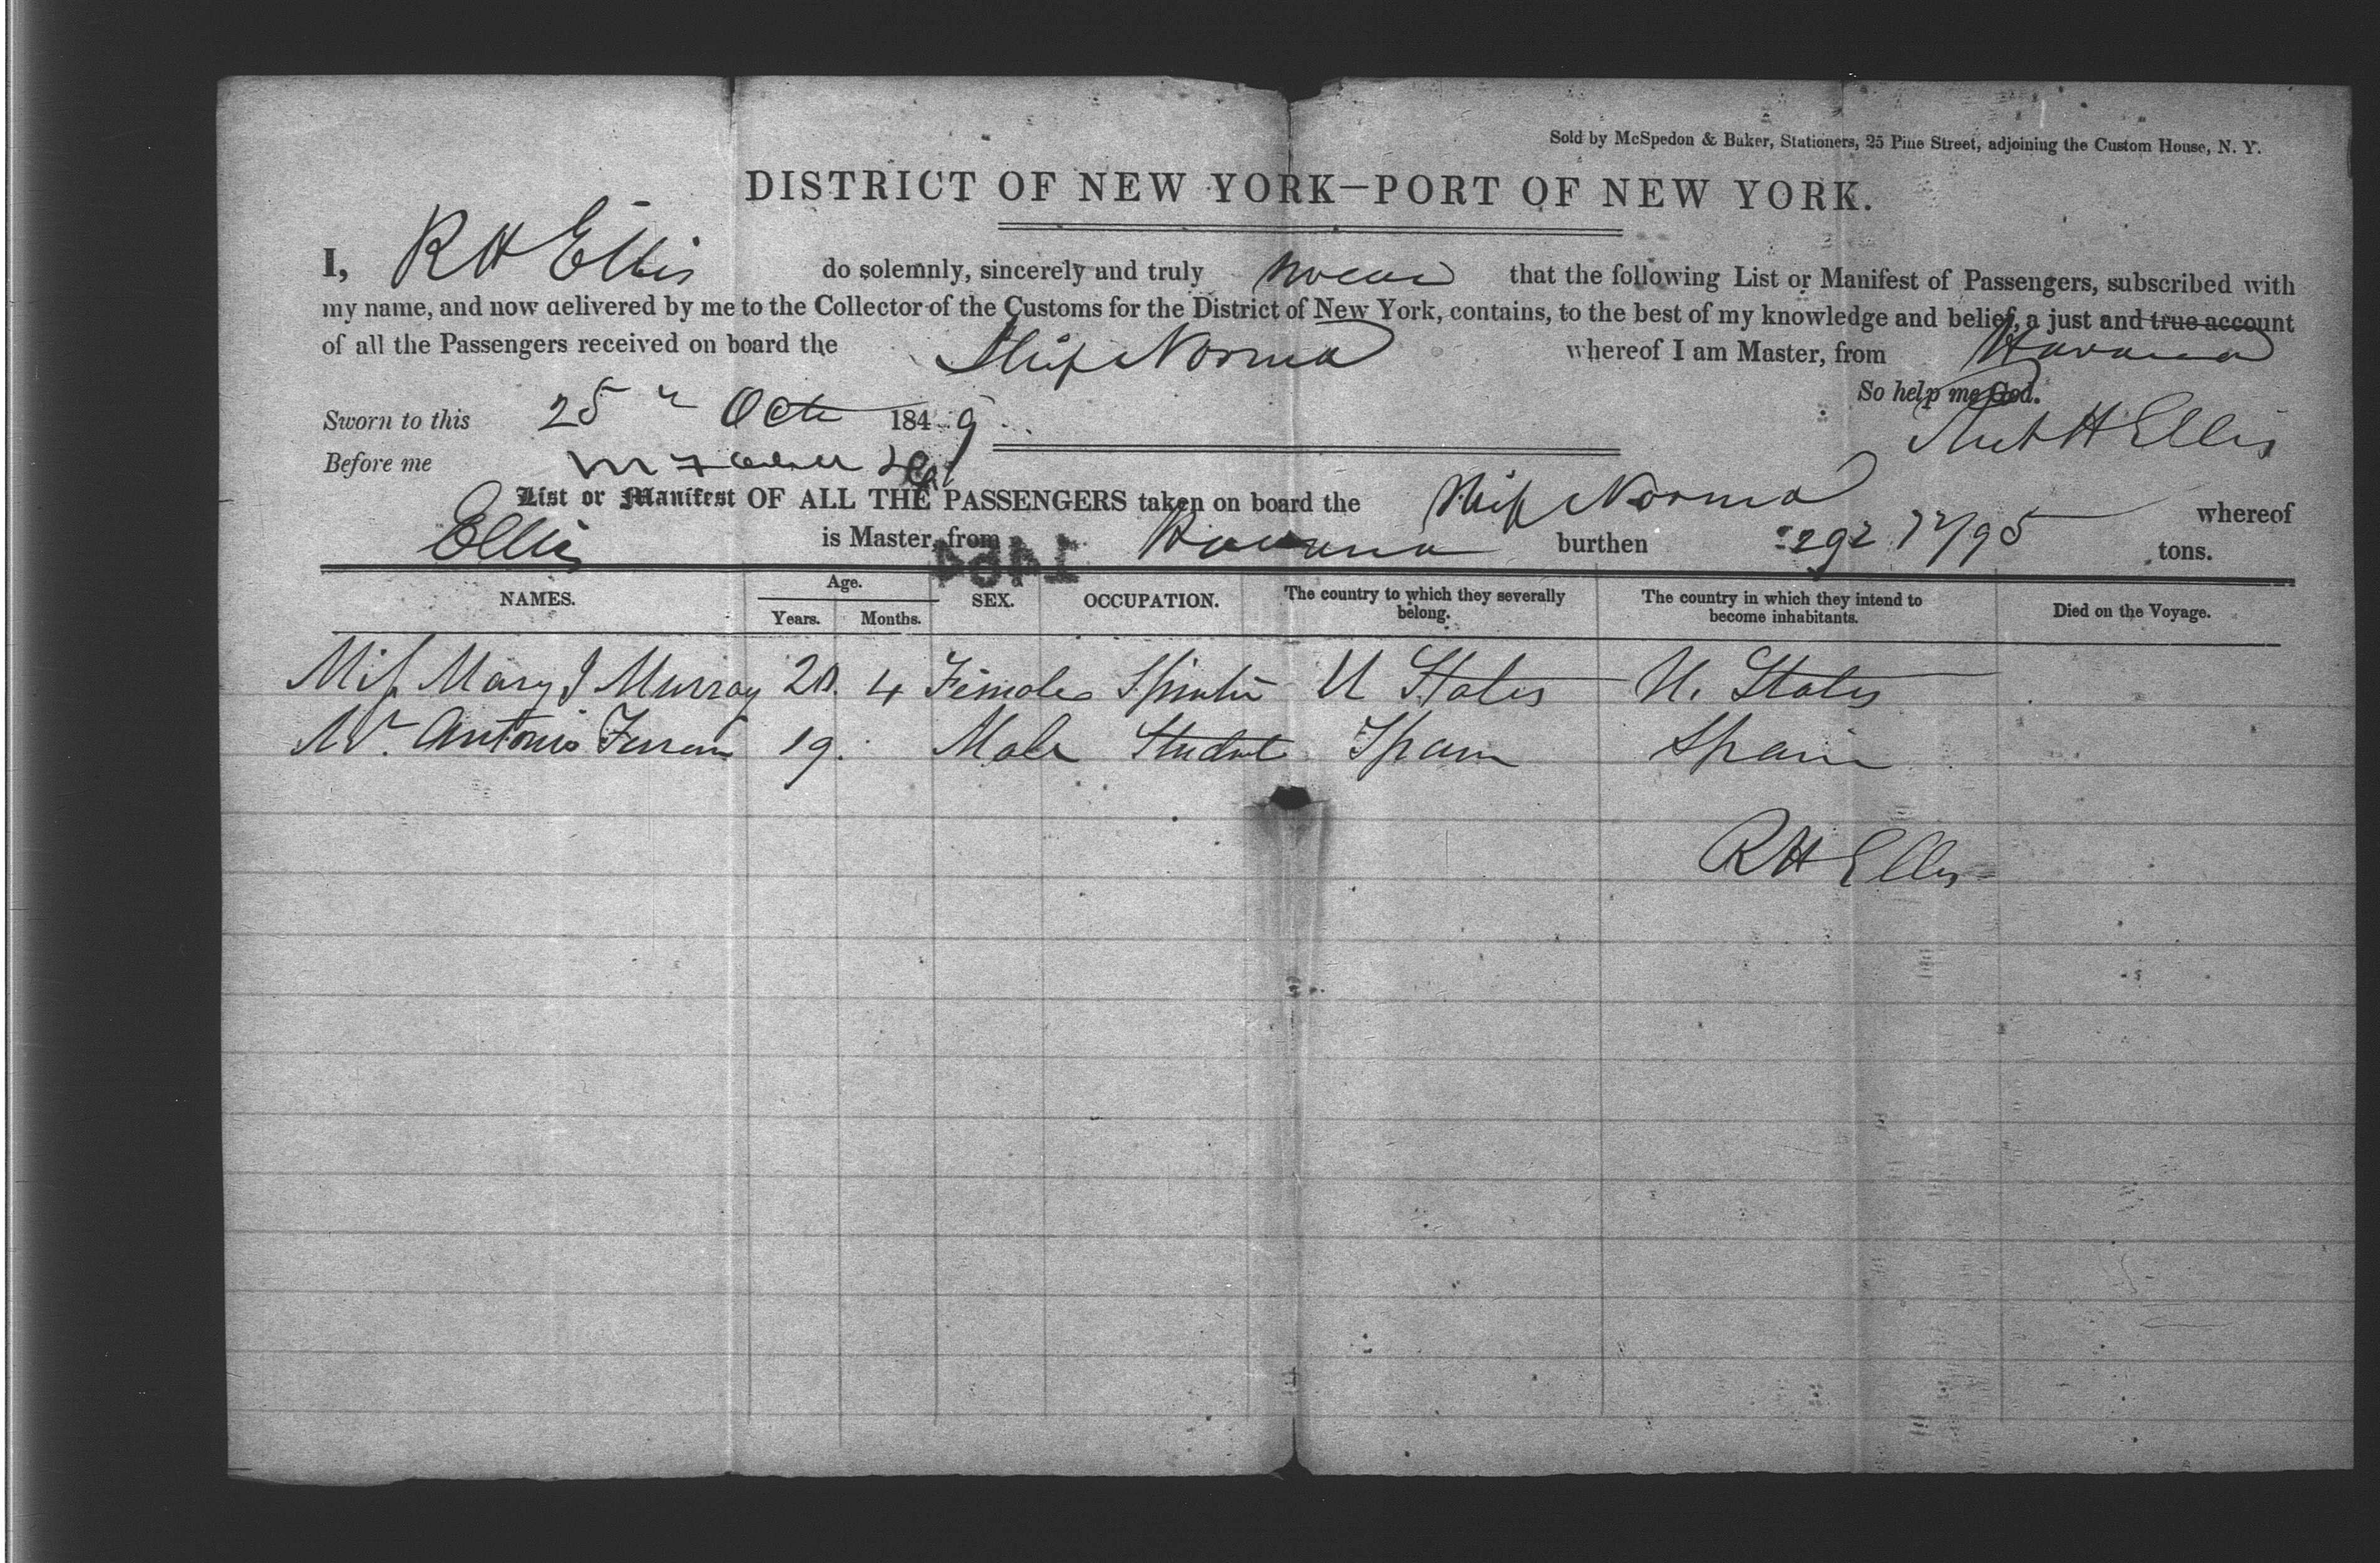 Sold by McSpedon & Baker, Stationers, 25 Pine Street, adjoining the Custom House, N. Y.
DISTRICT OF NEW YORK—PORT OF NEW YORK.
I, R H Ellis do solemnly, sincerely and truly swear that the following List or Manifest of Passengers, subscribed with
my name, and now delivered by me to the Collector of the Customs for the District of New York, contains, to the best of my knowledge and belief, a just and true account
of all the Passengers received on board the Ship Norma whereof I am Master, from Havana
So help me God.
Sworn to this 25th Oct 1849 H Ellis
Before me
List or Manifest OF ALL THE PASSENGERS taken on board the Ship Norma whereof
Ellis is Master, from Havana burthen 292 /95 tons.
1484
NAMES. Age. Years. Months. SEX. OCCUPATION. The country to which they severally belong. The country in which they intend to become inhabitants. Died on the Voyage.
Miss Mary J Murray 20. 4 Female Spinster U States U. States
Mr. Antonio 19. Male Student Spain Spain
R H Ellis